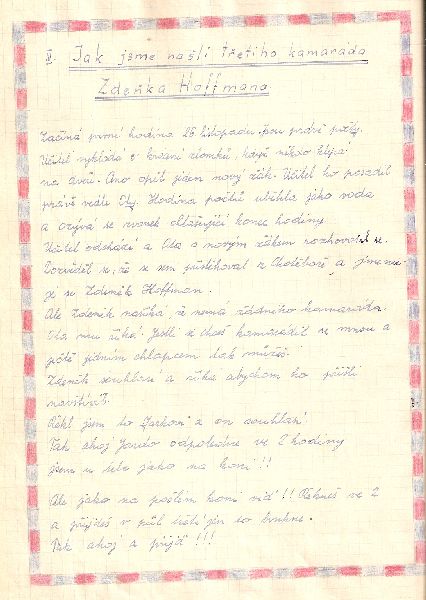 II. Jak jsme našli třetího kamaráda
Zdeňka Hoffmana
Začíná první hodina 26 listopadu jsou prdvě počty.
Učitel vykládá o krácení zlomků, když někdo klepá
na dveře. Ano opět jeden nový žák. Učitel ho posadil
právě vedle Oty. Hodina počtů utekla jako voda
a ozývá se zvonek ohlašující konec hodiny.
Učitel odchází a Ota s novým žákem rozhovořil se.
Dozvěděl se, že se sem přistěhoval z Chotěboře a jmenu-
je se Zdeněk Hoffman.
Ale Zdeněk naříká, že nemá žádného kamaráda.
Ota mu říká: Jestli se chceš kamarádit se mnou a
ještě jedním chlapcem tak můžeš.
Zdeněk souhlasí a říká abychom ho přišli
navštívit.
Řekl jsem to Jardovi a on souhlasí
Tak ahoj Jardo odpoledne ve 2 hodiny
jsem u tebe jako na koni!!
Ale jako na pošlém koni viď!! Řekneš ve 2
a přijdeš v půl třetí jen co kvukne.
Tak ahoj a přijď!!!